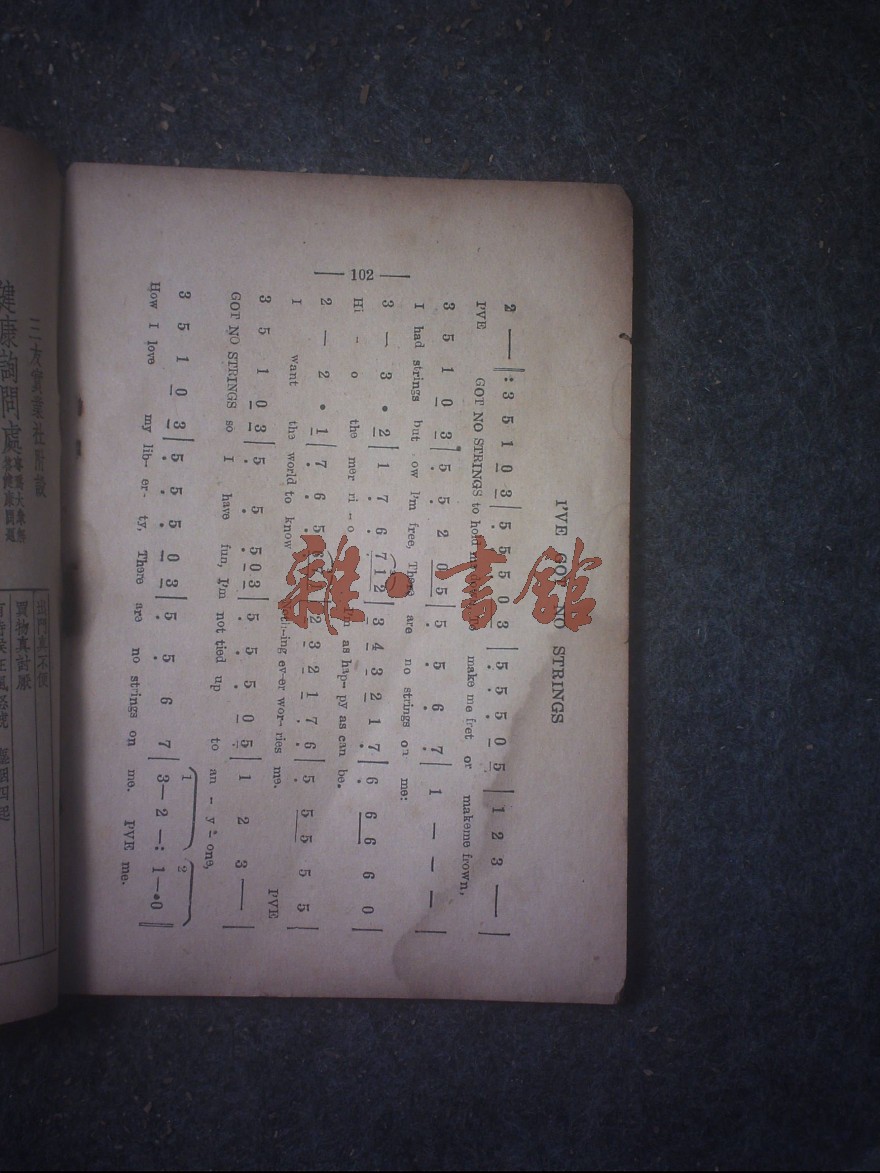 I'VE GOT NO STRINGS
2 — |: 3 5 1 0 3 | 5 5 5 0 3 | 5 5 5 0 5 | 1 2 3 — |
I'VE GOT NO STRINGS to hold make me fret or makeme frown,
3 5 1 0 3 | 5 5 2 0 5 | 5 5 6 7 | 1 — — — |
I had strings but ow I'm free, There are no strings on me:
3 — 3 • 2 | 1 7 6 7 1 2 | 3 4 3 2 1 7 | 6 6 6 6 0 |
Hi - o the mer ri - o as hap- py as can be.
2 — 2 • 1 | 7 6 5 | 2 3 2 1 7 6 | 5 5 5 5 5 |
I want the world to know ing ev-er wor- ries me. I'VE
3 5 1 0 3 | 5 5 5 0 3 | 5 5 5 0 5 | 1 2 3 — |
GOT NO STRINGS so I have fun, I'm not tied up to an - y - one,
1 2
3 5 1 0 3 | 5 5 5 0 3 | 5 5 6 7 | 3 — 2 — : 1 — • 0 ||
How I love my lib- er- ty, There are no strings on me. I'VE me.
— 102 —
三友實業社附設
健康詢問處
雜·書館